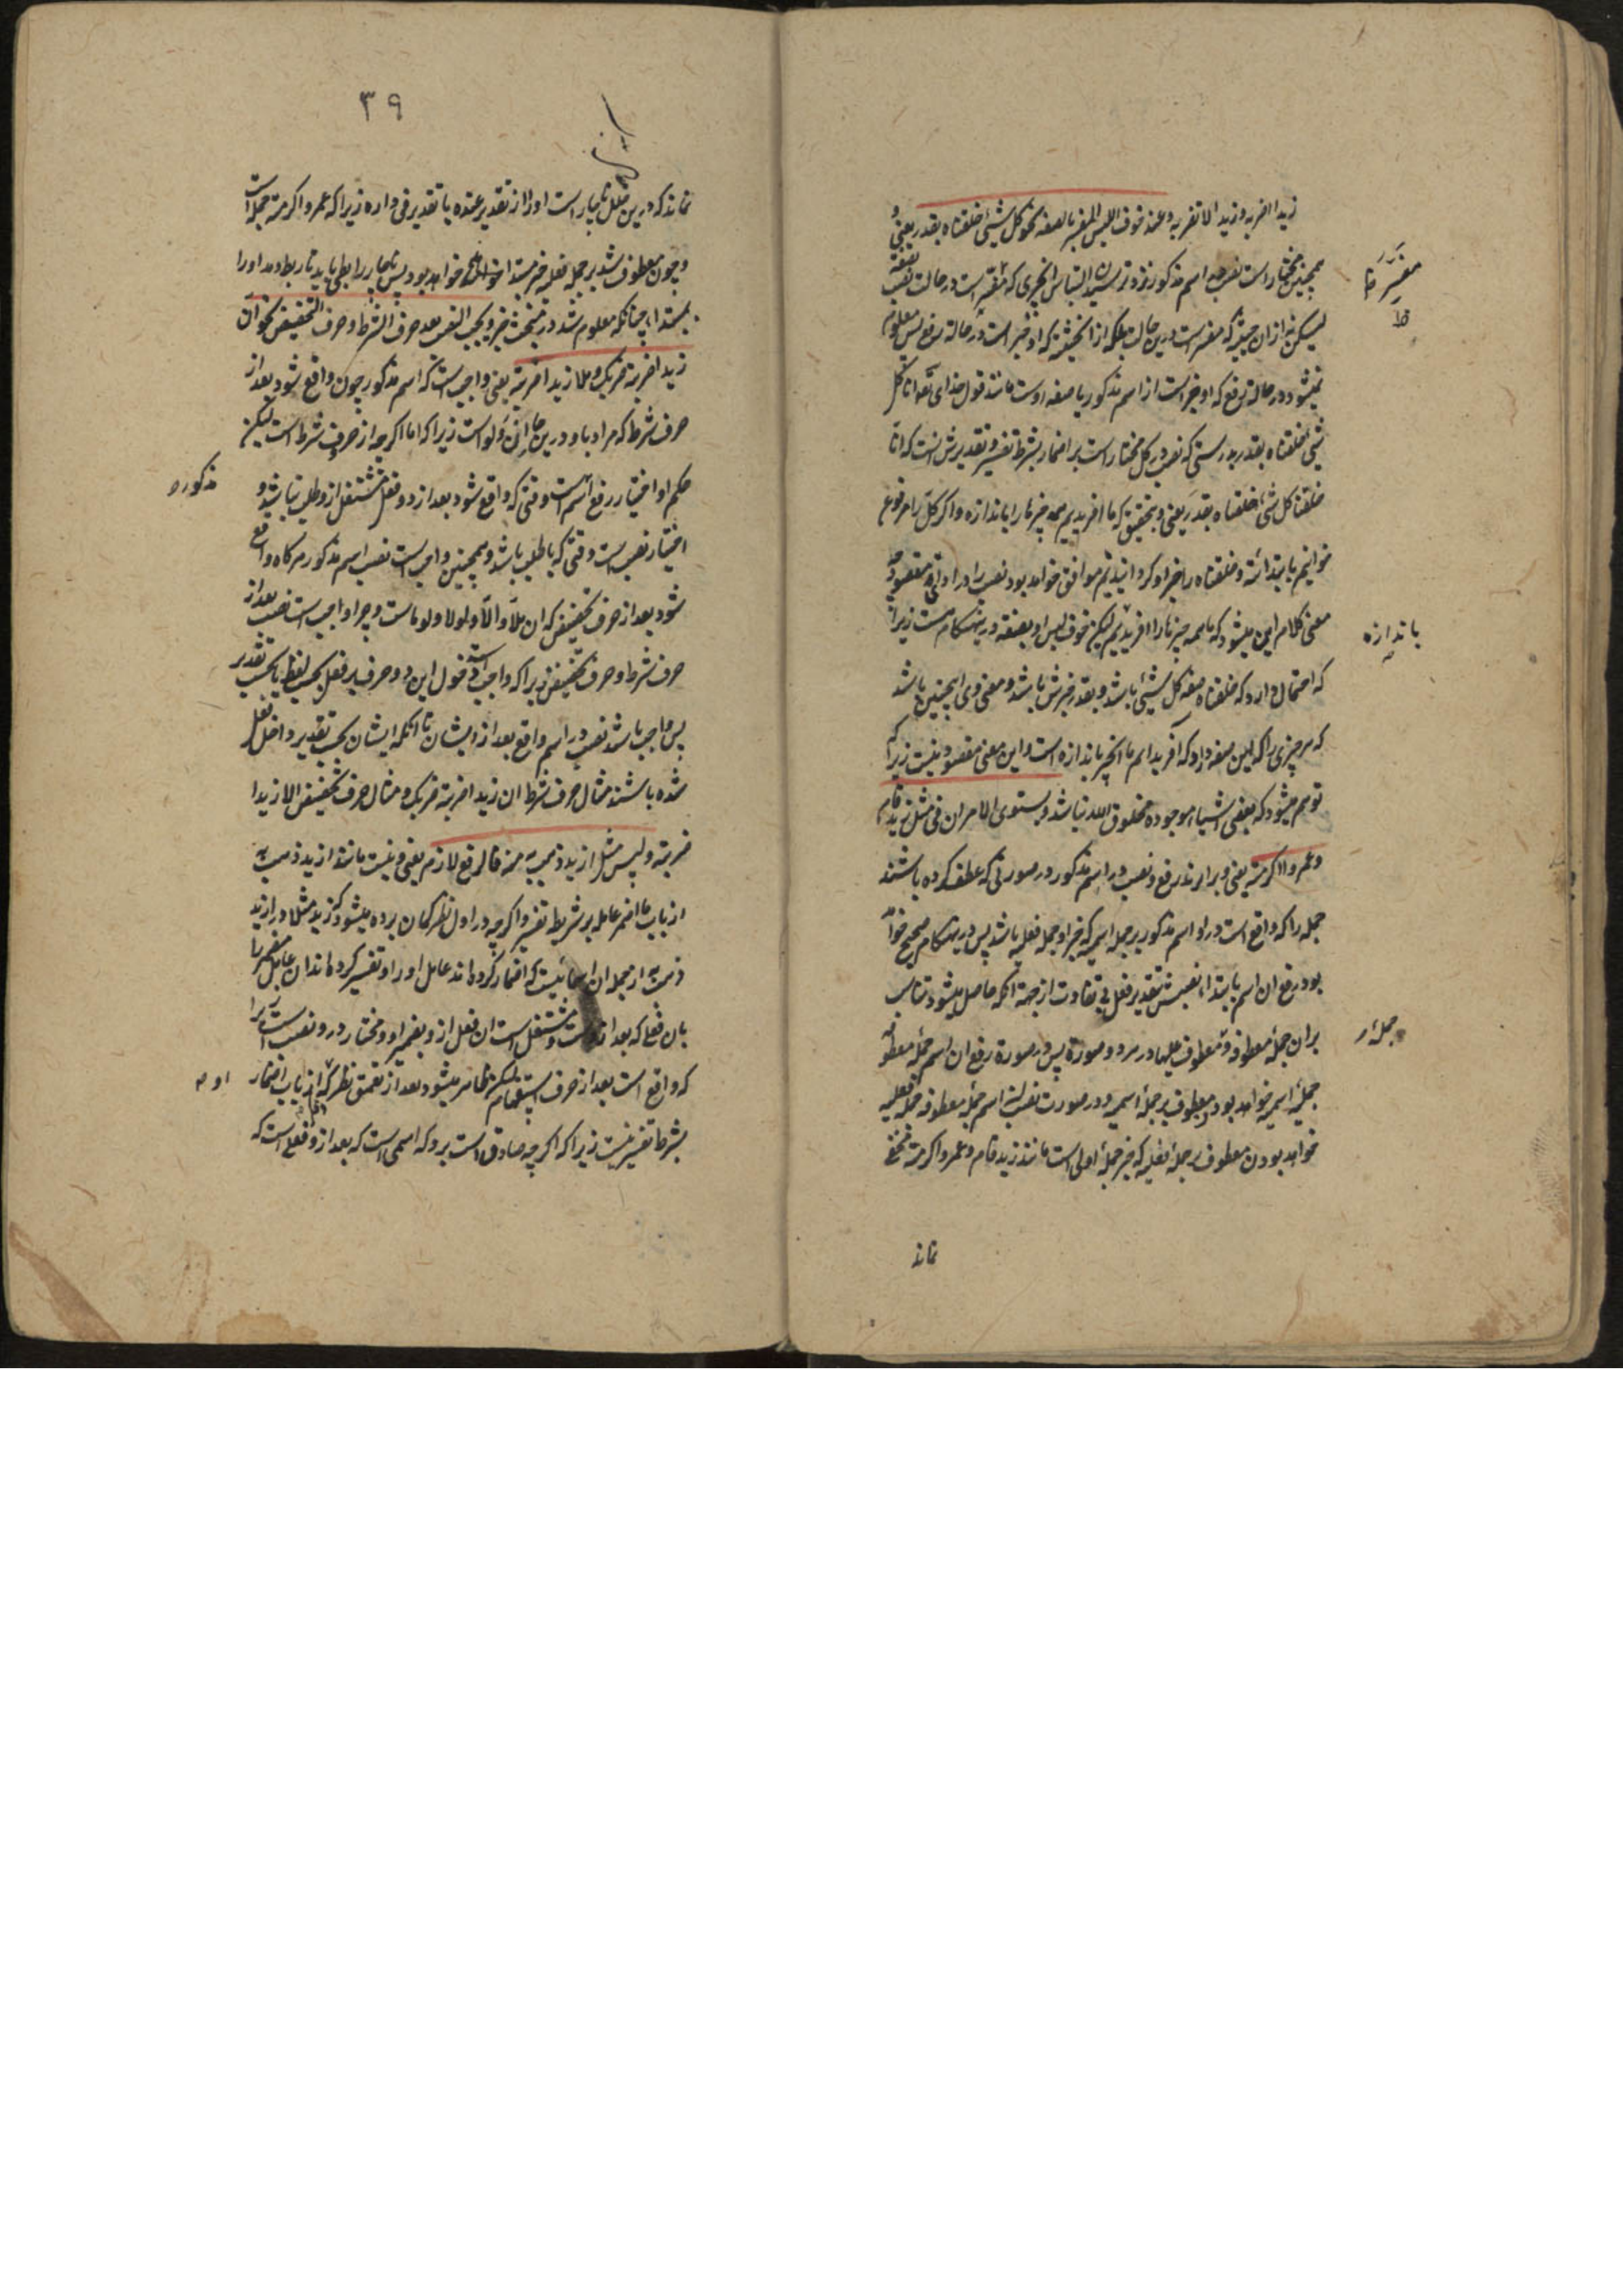 زیدا اضربه و زیدا لا تضربه و عند خوف اللبس المفسر بالصفه نحو کل شیئ خلقناه بقدر یعنی و
همچنین مختار است نصب اسم مذکور نزد ترسیدن التباس انچیزی که مفسر است در حالت نصب بصفة
لیکن نه ازان حیثیت که مفسر است درین حالت بلکه از انحیثیت که او خبر است در حالة رفع پس معلوم
نمیشود در حالة رفع که او خبر است از اسم مذکور یا صفه اوست مانند قول خدای تعه انا کل
شیئ خلقناه بقدر بدرستی که نصب در کل مختار است بر اضمار بشرط تفسیر و تقدیرش انست که انا
خلقنا کل شئ خلقناه بقدر یعنی و بتحقیق که ما افریدیم همه چیز هارا باندازه و اکر کل را مرفوع
خوانیم بابتدائیة و خلقناه را خبر او کردانیدیم موافق خواهد بود نصب را در ادای مقصود چه
معنی کلام این میشود که ما همه چیز هارا افریدیم لیکن خوف لبس او بصفه درینهنکام هست زیرا
که احتمال دارد که خلقناه صفه کل شیئ باشد و بقدر خبرش باشد و معنی وی اینچنین باشد
که هر چیزی را که این صفه دارد که آفریده ایم ما انچیز باندازه است و این معنی مقصود نیست زیرا که
توهم میشود که بعضی اشیاء موجوده مخلوق الله نباشد و یستوی الامران فی مثل زید قام
و عمروا اکرمته یعنی و برابرند رفع و نصب در اسم مذکور در صورتی که عطف کرده باشند
جمله را که واقع است در او اسم مذکور بر جمله اسمیه که خبر او جمله فعلیه باشد پس درینهنکام صحیح خواهد
بود رفع ان اسم بابتدا، نصبش بتقدیر فعل بی تفاوت از جهة انکه حاصل میشود تناسب
بران جملۀ معطوفه و معطوف علیها در هر دو صورة پس در صورة رفع ان اسم جملۀ معطوفه
جملۀ اسمیه خواهد بود معطوف بر جملۀ اسمیه و در صورت نصب ان اسم جملۀ معطوفه جملۀ فعلیه
خواهد بودن معطوف بر جملۀ فعلیه که خبر جملۀ اولی است مانند زید قام و عمروا اکرمته مخفی
نماند
باندازه
جملۀ
۳۹
نماند که درین مثل ناچار است او را از تقدیر عنده یا تقدیر فی داره زیرا که عمروا اکرمته جمله است
و چون معطوف شد بر جمله فعلیه خبر مبتدا خواهد بود پس ناچار رابطی باید تا ربط دهد او را
بمبتدا، چنانکه معلوم شد در مبحث خبر و یجب النصب بعد حرف الشرط و حرف التحضیض نحو ان
زیدا ضربته ضربک و هلا زیدا ضربته یعنی واجب است که اسم مذکور چون واقع شود بعد از
حرف شرط که مراد باو درین جا ان و لو است زیرا که اما اکرچه از حروف شرط است لیکن
حکم او اختیار رفع اسم است وقتی که واقع شود بعد از او فعل مشتغل ازو طلب نباشد و
اختیار نصب است وقتی که با طلب باشد و همچنین واجب است نصب اسم مذکور هرکاه واقع
شود بعد از حرف تحضیض که ان هلا و الا و لولا و لوما ست و چرا واجب است نصب بعد از
حرف شرط و حرف تحضیض زیرا که واجب است دخول این دو حرف بر فعل بحسب لفظ یا بحسب تقدیر
پس واجب باشد نصب در اسم واقع بعد از ایشان تا انکه ایشان بحسب تقدیر داخل فعل
شده باشند مثال حرف شرط ان زیدا ضربته ضربک و مثال حرف تحضیض الا زیدا
ضربته و لیس مثل ازید ذهب به منه فالرفع لازم یعنی و نیست مانند ازید ذهب به
از باب ما اضمر عامله بر شریطه تفسیر و اکرچه در اول نظر کمان برده میشود که زید مثلا در ازید
ذهب به از جمله ان اسمائیست که اضمار کرده اند عامل او را و تفسیر کرده اند ان عامل مضمر را
بان فعلی که بعد از وست و مشتغل است ان فعل ازو بضمیر او و مختار درو نصب است زیرا
که واقع است بعد از حرف استفهام لیکن ظاهر میشود بعد از تعمق نظر که از باب اضمار
بشرط تفسیر نیست زیرا که اکرچه صادق است برو که اسمی است که بعد ازو فعلی است که
مذکوره